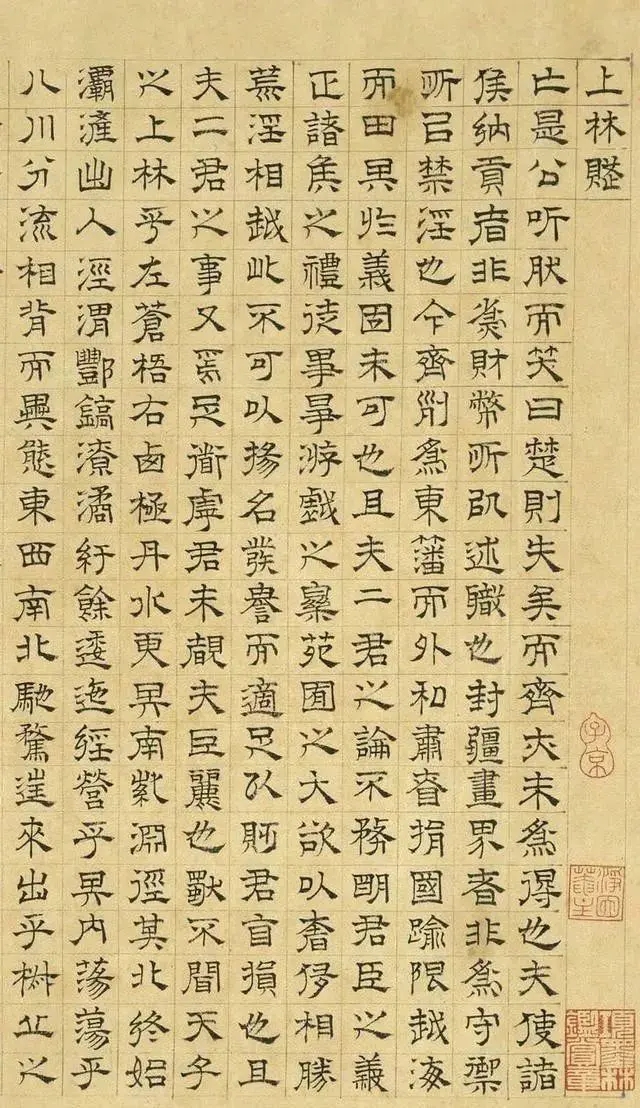 上林賦
亡是公听肰而笑曰楚則失矣而齊亦未爲得也夫使諸
侯納貢者非爲財幣所以述職也封疆畫界者非爲守禦
所㠯禁淫也今齊列爲東藩而外私肅眘捐國隃限越海
而田其於義固未可也且夫二君之論不務明君臣之義
正諸侯之禮徒事爭游戲之樂苑囿之大欲以奢侈相勝
荒淫相越此不可以揚名發譽而適足以貶君自損也且
夫二君之事又焉足道虖君未覩夫巨麗也獨不聞天子
之上林乎左蒼梧右西極丹水更其南紫淵徑其北終始
灞滻出入涇渭酆鎬潦潏紆餘逶迤經營乎其內蕩蕩乎
八川分流相背而異態東西南北馳騖往來出乎椒丘之
子京
項墨林鑑賞章